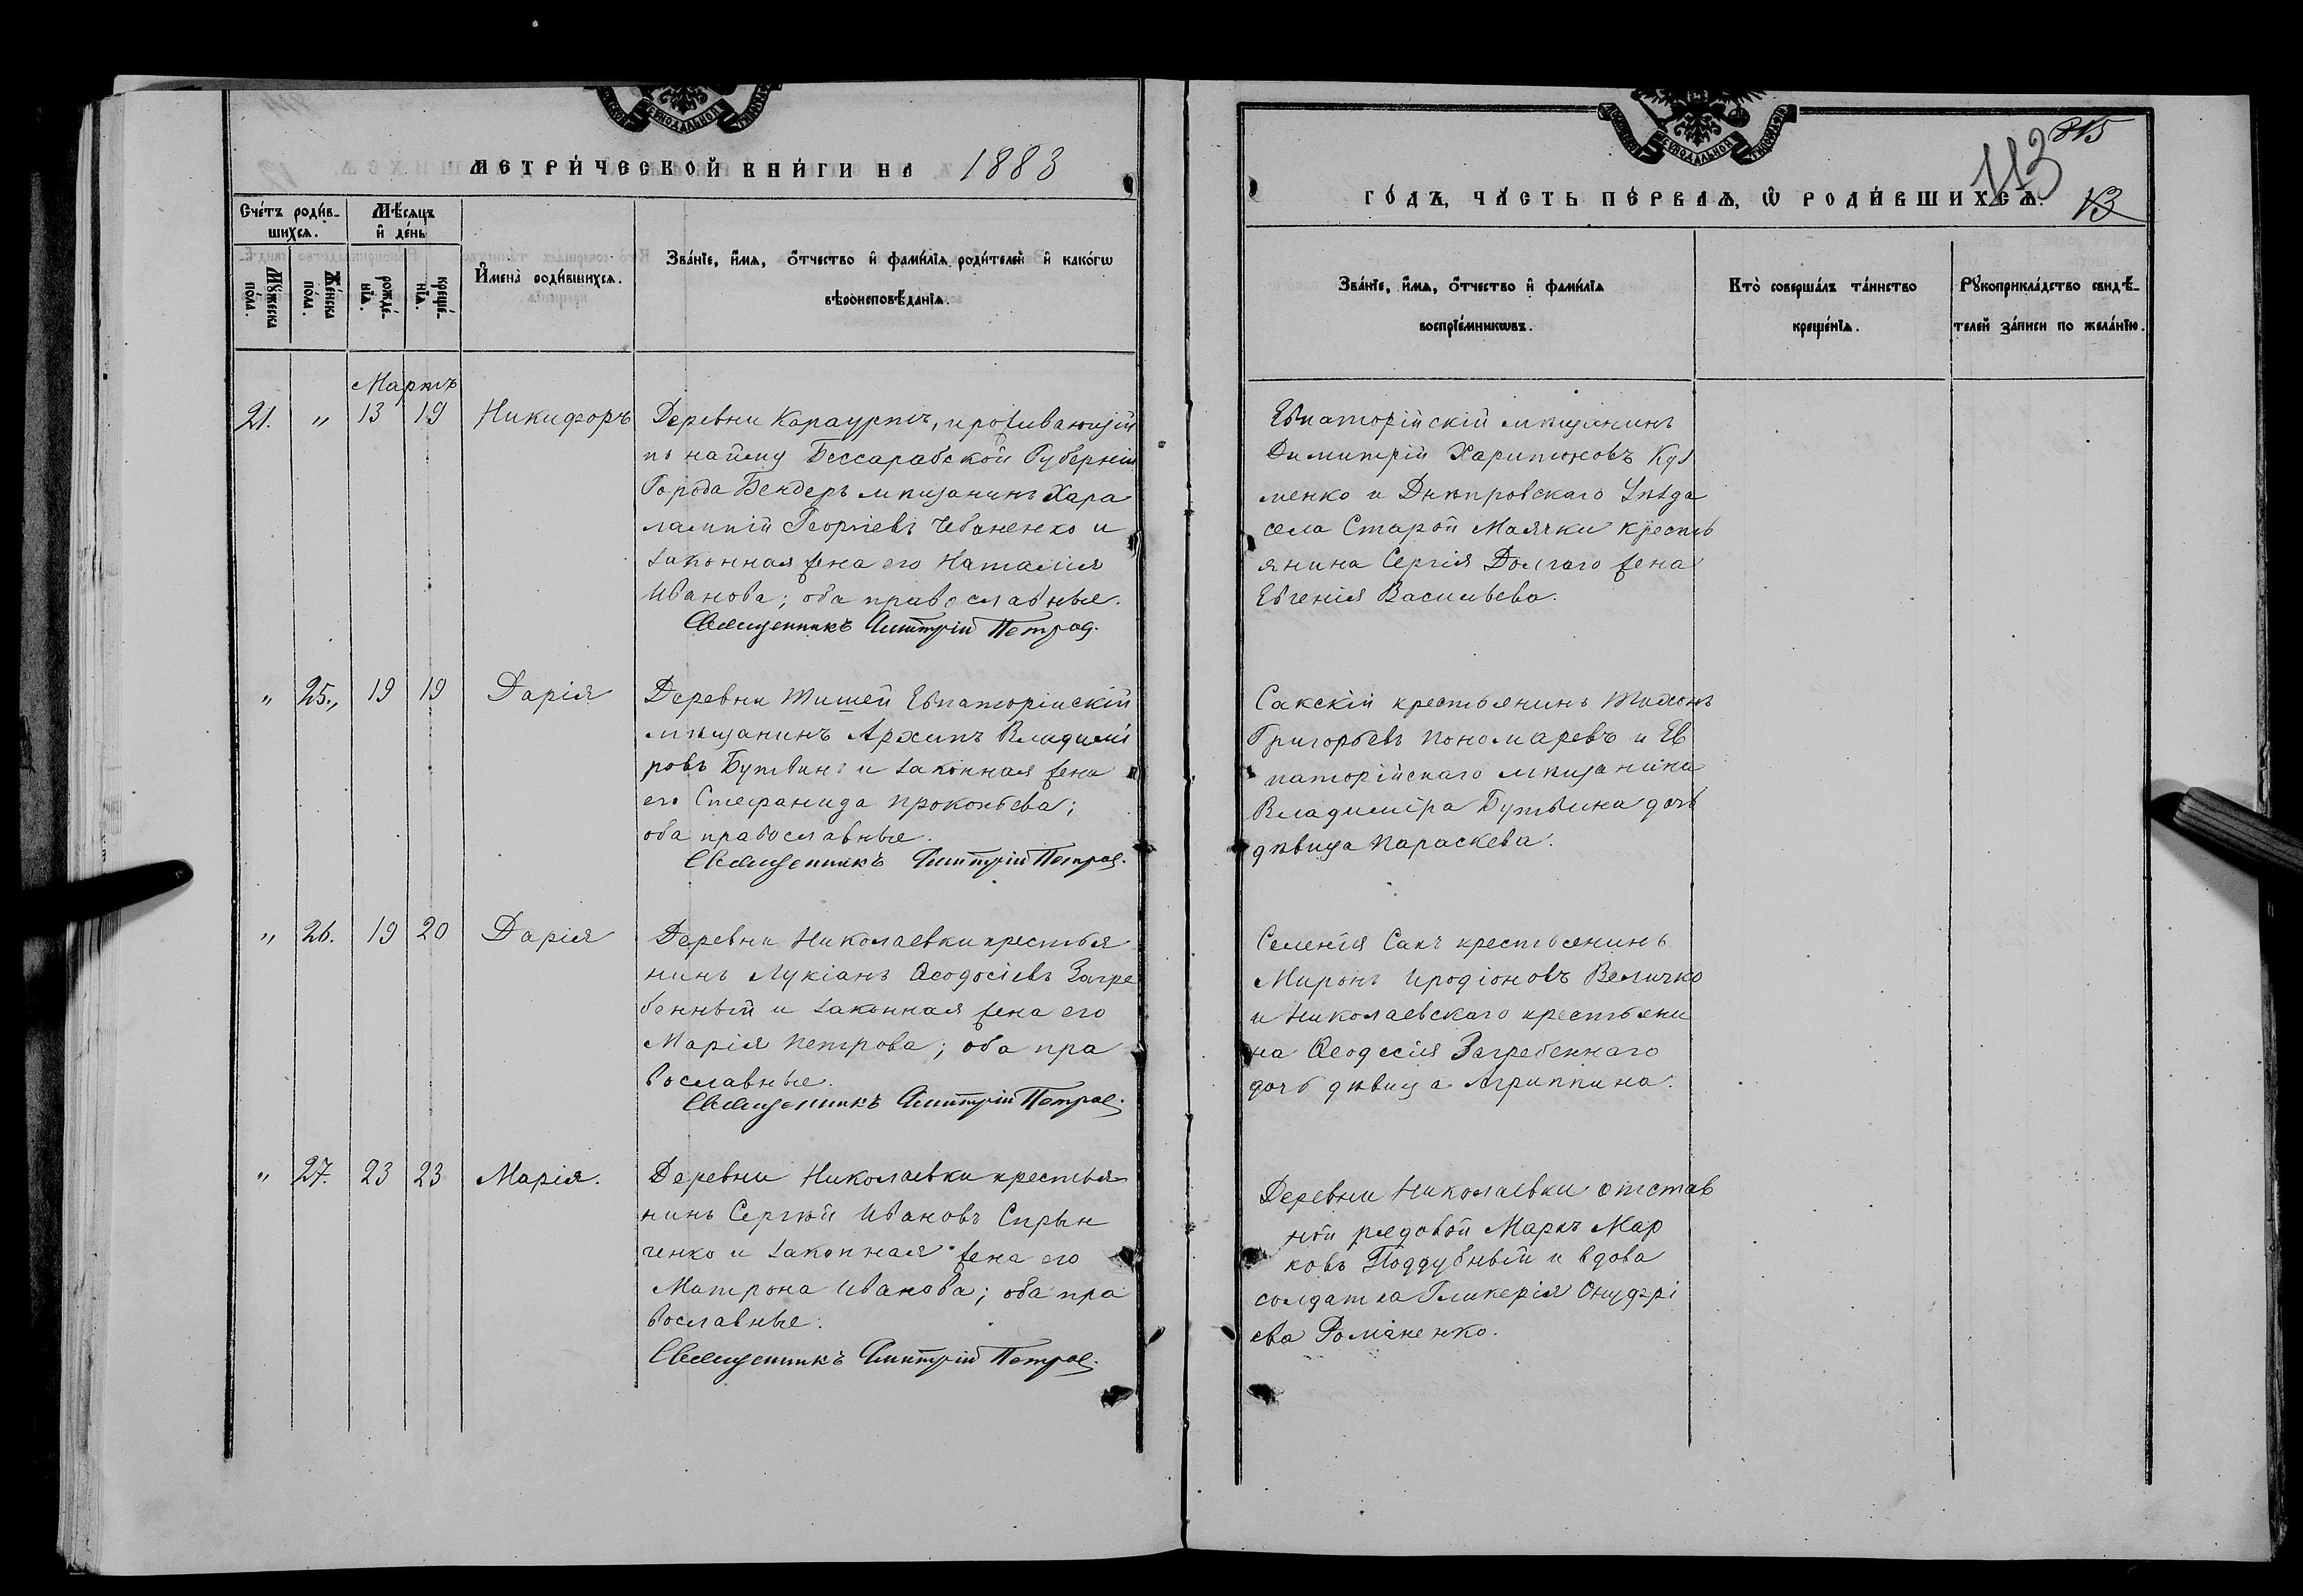 СѴНОДАЛЬНОЙ
МЕТРИ́ЧЕСКОЙ КНИ́ГИ НА 1883
Сче́тъ роди́в-
шихсѧ.
Мѣ́сѧцъ
и҆ де́нь
Мꙋ́жеска
по́ла.
Же́нска
по́ла.
рожде́-
нїѧ.
креще́-
нїѧ.
И҆мена̀ роди́вшихсѧ.
Зва́нїе, и҆́мѧ, ѻ҆́тчество и҆ фами́лїѧ роди́телей и҆ како́гѡ
вѣроисповѣ́данїѧ.
Мартъ
21. " 13 19 Никифоръ
Деревни Карауртъ, проживающій
по найму Бессарабской Губерніи
Города Бендеръ мѣщанинъ Хара
лампій Георгіевъ Чебаненко и
законная жена его Наталія
Иванова; оба православные.
Священникъ Димитрій Петров.
" 25." 19 19 Дарія
Деревни Тишей Евпаторійскій
мѣщанинъ Архипъ Владимі
ровъ Бутвинъ и законная жена
его Стефанида Прокопьева;
оба православные.
Священникъ Димитрій Петров.
" 26. 19 20 Дарія
Деревни Николаевки крестья
нинъ Лукіанъ Ѳеодосіевъ Загре
бенный и законная жена его
Марія Петрова; оба пра
вославные.
Священникъ Димитрій Петров.
" 27. 23 23 Марія.
Деревни Николаевки крестья
нинъ Сергѣй Ивановъ Скрын
ченко и законная жена его
Матрона Иванова; оба пра
вославные.
Священникъ Димитрій Петров.
СѴНОДАЛЬНОЙ
113
13
ГО́ДЪ, ЧА́СТЬ ПЕ́РВАѦ, Ѡ҆ РОДИ́ВШИХСѦ.
Зва́нїе, и҆́мѧ, ѻ҆́тчество и҆ фами́лїѧ
воспрїе́мникѡвъ.
Кто̀ соверша́лъ та́инство
креще́нїѧ.
Рꙋкоприкла́дство свидѣ́-
телей за́писи по жела́нїю.
Евпаторійскій мѣщанинъ
Димитрій Харитоновъ Куз
менко и Днѣпровскаго Уѣзда
села Старой Маячки кресть
янина Сергія Долгаго жена
Евгенія Васильева.
Сакскій крестьянинъ Тихонъ
Григорьевъ Пономаревъ и Ев
паторійскаго мѣщанина
Владиміра Бутвина дочь
дѣвица Параскева.
Селенія Сакъ крестьянинъ
Миронъ Иродіоновъ Величко
и Николаевскаго крестьяни
на Ѳеодосія Загребеннаго
дочь дѣвица Агриппина.
Деревни Николаевки отстав
ной рядовой Маркъ Мар
ковъ Поддубный и вдова
солдатка Гликерія Онуфрі
ева Романенко.